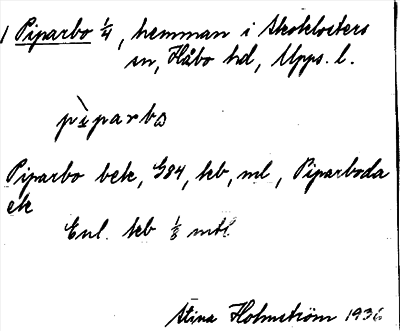 1 Piparbo ¼, hemman i Skoklosters
sn, Håbo hd, Upps. l.
pı̀parbω
Piparbo bek, G84, kb, ml, Piparboda
ek
Enl. kb ⅓ mtl
Stina Holmström 1936